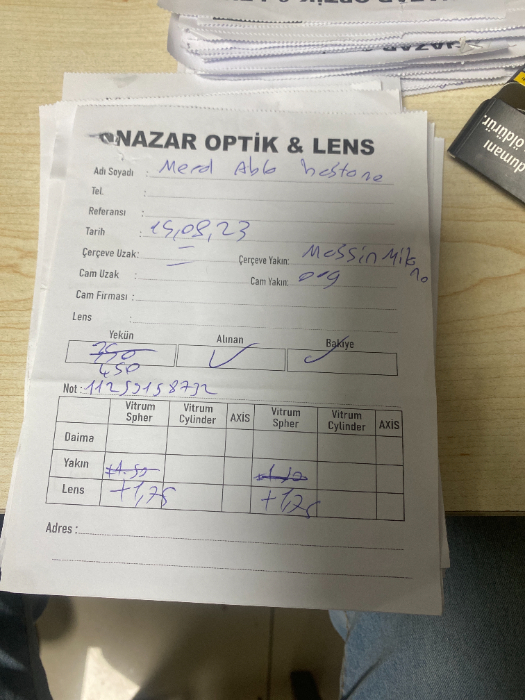 NAZAR OPTİK & LENS
Adı Soyadı : Merd Abb hestane
Tel. :
Referansı :
Tarih : 15,08,23
Çerçeve Uzak:
Çerçeve Yakın: Messin Mik no
Cam Uzak :
Cam Yakın: org
Cam Firması :
Lens :
Yekün Alınan Bakiye
350
450
Not :
Vitrum Spher Vitrum Cylinder AXİS Vitrum Spher Vitrum Cylinder AXİS
Daima
Yakın
Lens +1,75 +1,75
Adres :
dumanı
öldürür.